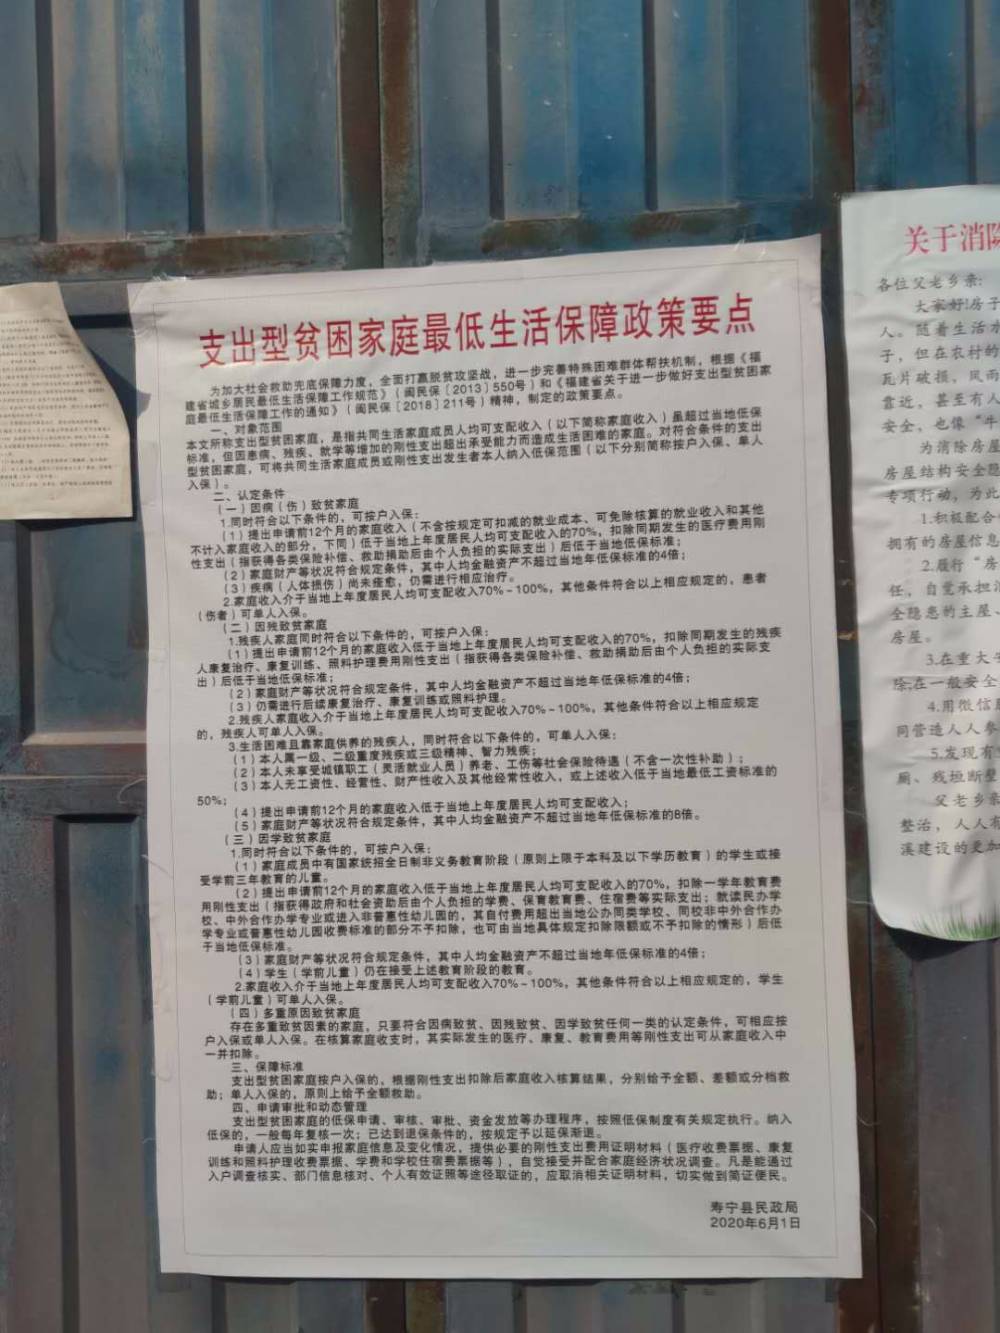 支出型贫困家庭最低生活保障政策要点
为加大社会救助兜底保障力度，全面打赢脱贫攻坚战，进一步完善特殊困难群体帮扶机制，根据《福
建省城乡居民最低生活保障工作规范》（闽民保〔2013〕550号）和《福建省关于进一步做好支出型贫困家
庭最低生活保障工作的通知》（闽民保〔2018〕211号）精神，制定的政策要点。
一、对象范围
本文所称支出型贫困家庭，是指共同生活家庭成员人均可支配收入（以下简称家庭收入）虽超过当地低保
标准，但因患病、残疾、就学等增加的刚性支出超出承受能力而造成生活困难的家庭。对符合条件的支出
型贫困家庭，可将共同生活家庭成员或刚性支出发生者本人纳入低保范围（以下分别简称按户入保、单人
入保）。
二、认定条件
（一）因病（伤）致贫家庭
1.同时符合以下条件的，可按户入保：
（1）提出申请前12个月的家庭收入（不含按规定可扣减的就业成本、可免除核算的就业收入和其他
不计入家庭收入的部分，下同）低于当地上年度居民人均可支配收入的70%，扣除同期发生的医疗费用刚
性支出（指获得各类保险补偿、救助捐助后由个人负担的实际支出）后低于当地低保标准；
（2）家庭财产等状况符合规定条件，其中人均金融资产不超过当地年低保标准的4倍；
（3）疾病（人体损伤）尚未痊愈，仍需进行相应治疗。
2.家庭收入介于当地上年度居民人均可支配收入70%~100%，其他条件符合以上相应规定的，患者
（伤者）可单人入保。
（二）因残致贫家庭
1.残疾人家庭同时符合以下条件的，可按户入保：
（1）提出申请前12个月的家庭收入低于当地上年度居民人均可支配收入的70%，扣除同期发生的残疾
人康复治疗、康复训练、照料护理费用刚性支出（指获得各类保险补偿、救助捐助后由个人负担的实际支
出）后低于当地低保标准；
（2）家庭财产等状况符合规定条件，其中人均金融资产不超过当地年低保标准的4倍；
（3）仍需进行后续康复治疗、康复训练或照料护理。
2.残疾人家庭收入介于当地上年度居民人均可支配收入70%~100%，其他条件符合以上相应规定
的，残疾人可单人入保。
3.生活困难且靠家庭供养的残疾人，同时符合以下条件的，可单人入保：
（1）本人属一级、二级重度残疾或三级精神、智力残疾；
（2）本人未享受城镇职工（灵活就业人员）养老、工伤等社会保险待遇（不含一次性补助）；
（3）本人无工资性、经营性、财产性收入及其他经常性收入，或上述收入低于当地最低工资标准的
50%；
（4）提出申请前12个月的家庭收入低于当地上年度居民人均可支配收入；
（5）家庭财产等状况符合规定条件，其中人均金融资产不超过当地年低保标准的8倍。
（三）因学致贫家庭
1.同时符合以下条件的，可按户入保：
（1）家庭成员中有国家统招全日制非义务教育阶段（原则上限于本科及以下学历教育）的学生或接
受学前三年教育的儿童。
（2）提出申请前12个月的家庭收入低于当地上年度居民人均可支配收入的70%，扣除一学年教育费
用刚性支出（指获得政府和社会资助后由个人负担的学费、保育教育费、住宿费等实际支出；就读民办学
校、中外合作办学专业或进入非普惠性幼儿园的，其自付费用超出当地公办同类学校、同校非中外合作办
学专业或普惠性幼儿园收费标准的部分不予扣除，也可由当地具体规定扣除限额或不予扣除的情形）后低
于当地低保标准。
（3）家庭财产等状况符合规定条件，其中人均金融资产不超过当地年低保标准的4倍；
（4）学生（学前儿童）仍在接受上述教育阶段的教育。
2.家庭收入介于当地上年度居民人均可支配收入70%~100%，其他条件符合以上相应规定的，学生
（学前儿童）可单人入保。
（四）多重原因致贫家庭
存在多重致贫因素的家庭，只要符合因病致贫、因残致贫、因学致贫任何一类的认定条件，可相应按
户入保或单人入保。在核算家庭收支时，其实际发生的医疗、康复、教育费用等刚性支出可从家庭收入中
一并扣除。
三、保障标准
支出型贫困家庭按户入保的，根据刚性支出扣除后家庭收入核算结果，分别给予全额、差额或分档救
助；单人入保的，原则上给予全额救助。
四、申请审批和动态管理
支出型贫困家庭的低保申请、审核、审批、资金发放等办理程序，按照低保制度有关规定执行。纳入
低保的，一般每年复核一次；已达到退保条件的，按规定予以延保渐退。
申请人应当如实申报家庭信息及变化情况，提供必要的刚性支出费用证明材料（医疗收费票据、康复
训练和照料护理收费票据、学费和学校住宿费票据等），自觉接受并配合家庭经济状况调查。凡是能通过
入户调查核实、部门信息核对、个人有效证照等途径取证的，应取消相关证明材料，切实做到简证便民。
寿宁县民政局
2020年6月1日
关于消除
各位父老乡亲：
大家好!房子
人。随着生活水
子，但在农村的
瓦片破损，风雨
靠近，甚至有人
安全，也像“牛
为消除房屋
房屋结构安全隐
专项行动，为此
1.积极配合
拥有的房屋信息
2.履行“房
任，自觉承担
全隐患的主屋、
房屋。
3.在重大
除;在一般安全
4.用微信
同营造人人参
5.发现有
厕、残垣断壁
父老乡亲
整治，人人有
溪建设的更加